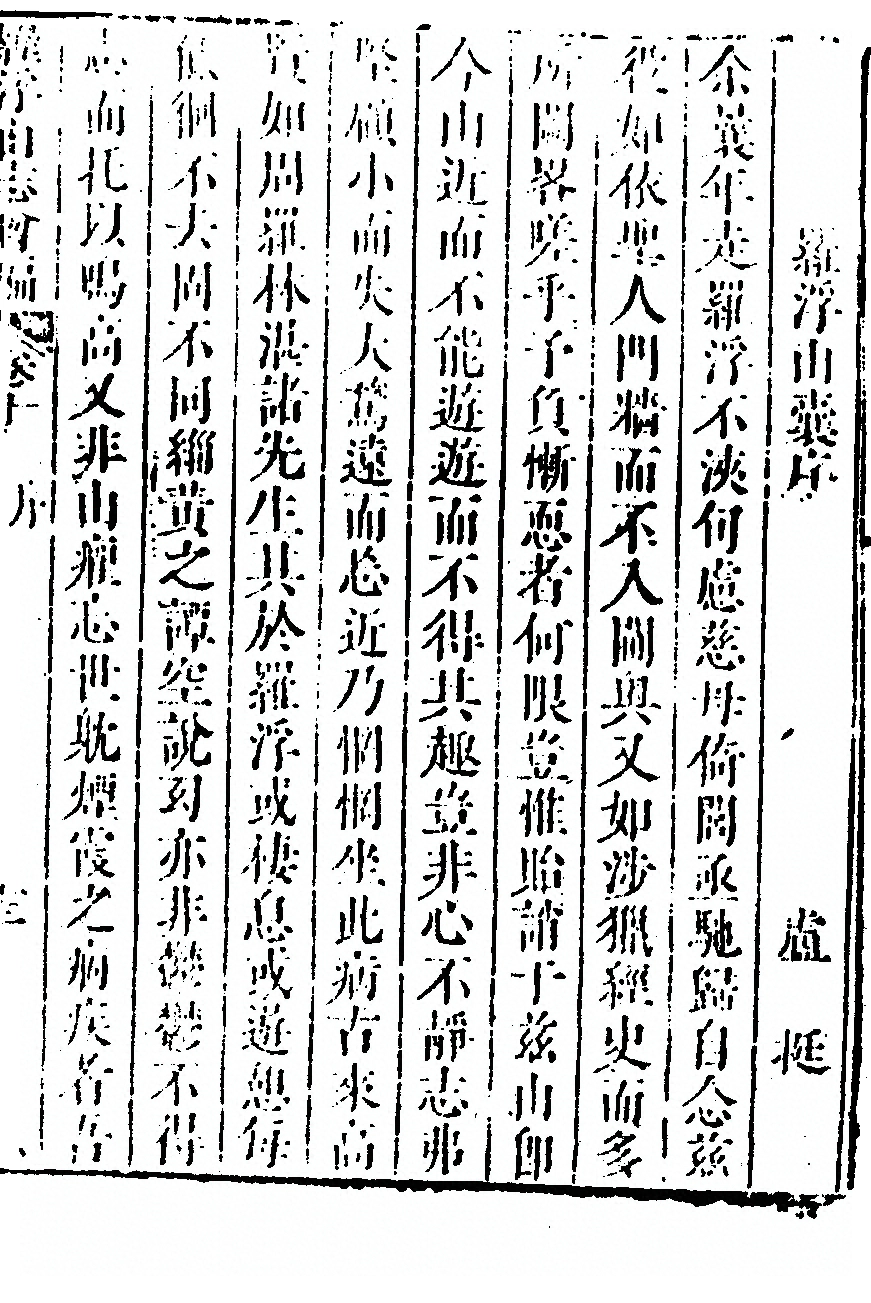 羅浮山囊序 盧挺
余曩年走羅浮不浹旬慮慈母倚閭亟馳歸自念茲
役如依聖人門牆而不入閫奥又如涉獵經史而多
所闕畧嗟乎予負慚恧者何限豈惟貽誚于茲山卽
今山近而不能遊遊而不得其趣豈非心不靜志弗
堅顧小而失大騖遠而忽近乃惘惘坐此病古來高
賢如周羅林湛諸先生其於羅浮或棲息或遊想每
低徊不去固不同緇黄之譚空說幻亦非鬱鬱不得
志而托以鳴高又非山癯忘世耽煙霞之病疾者吾
羅浮山志會編 序